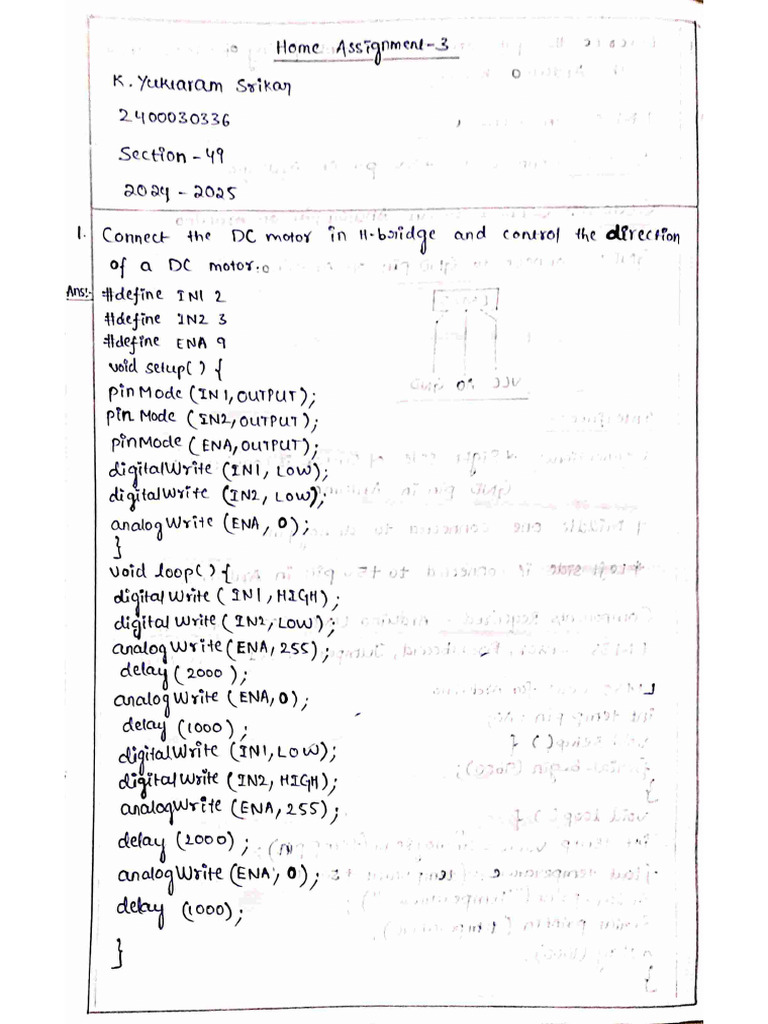 Home Assignment-3
K. Yuktaram Srikar
2400030336
Section - 49
2024 - 2025
1. Connect the DC motor in H-bridge and control the direction
of a DC motor.
Ans:- #define IN1 2
#define IN2 3
#define ENA 9
void setup() {
pinMode (IN1, OUTPUT);
pinMode (IN2, OUTPUT);
pinMode (ENA, OUTPUT);
digitalWrite (IN1, LOW);
digitalWrite (IN2, LOW);
analogWrite (ENA, 0);
}
void loop() {
digitalWrite (IN1, HIGH);
digitalWrite (IN2, LOW);
analogWrite (ENA, 255);
delay (2000);
analogWrite (ENA, 0);
delay (1000);
digitalWrite (IN1, LOW);
digitalWrite (IN2, HIGH);
analogWrite (ENA, 255);
delay (2000);
analogWrite (ENA, 0);
delay (1000);
}